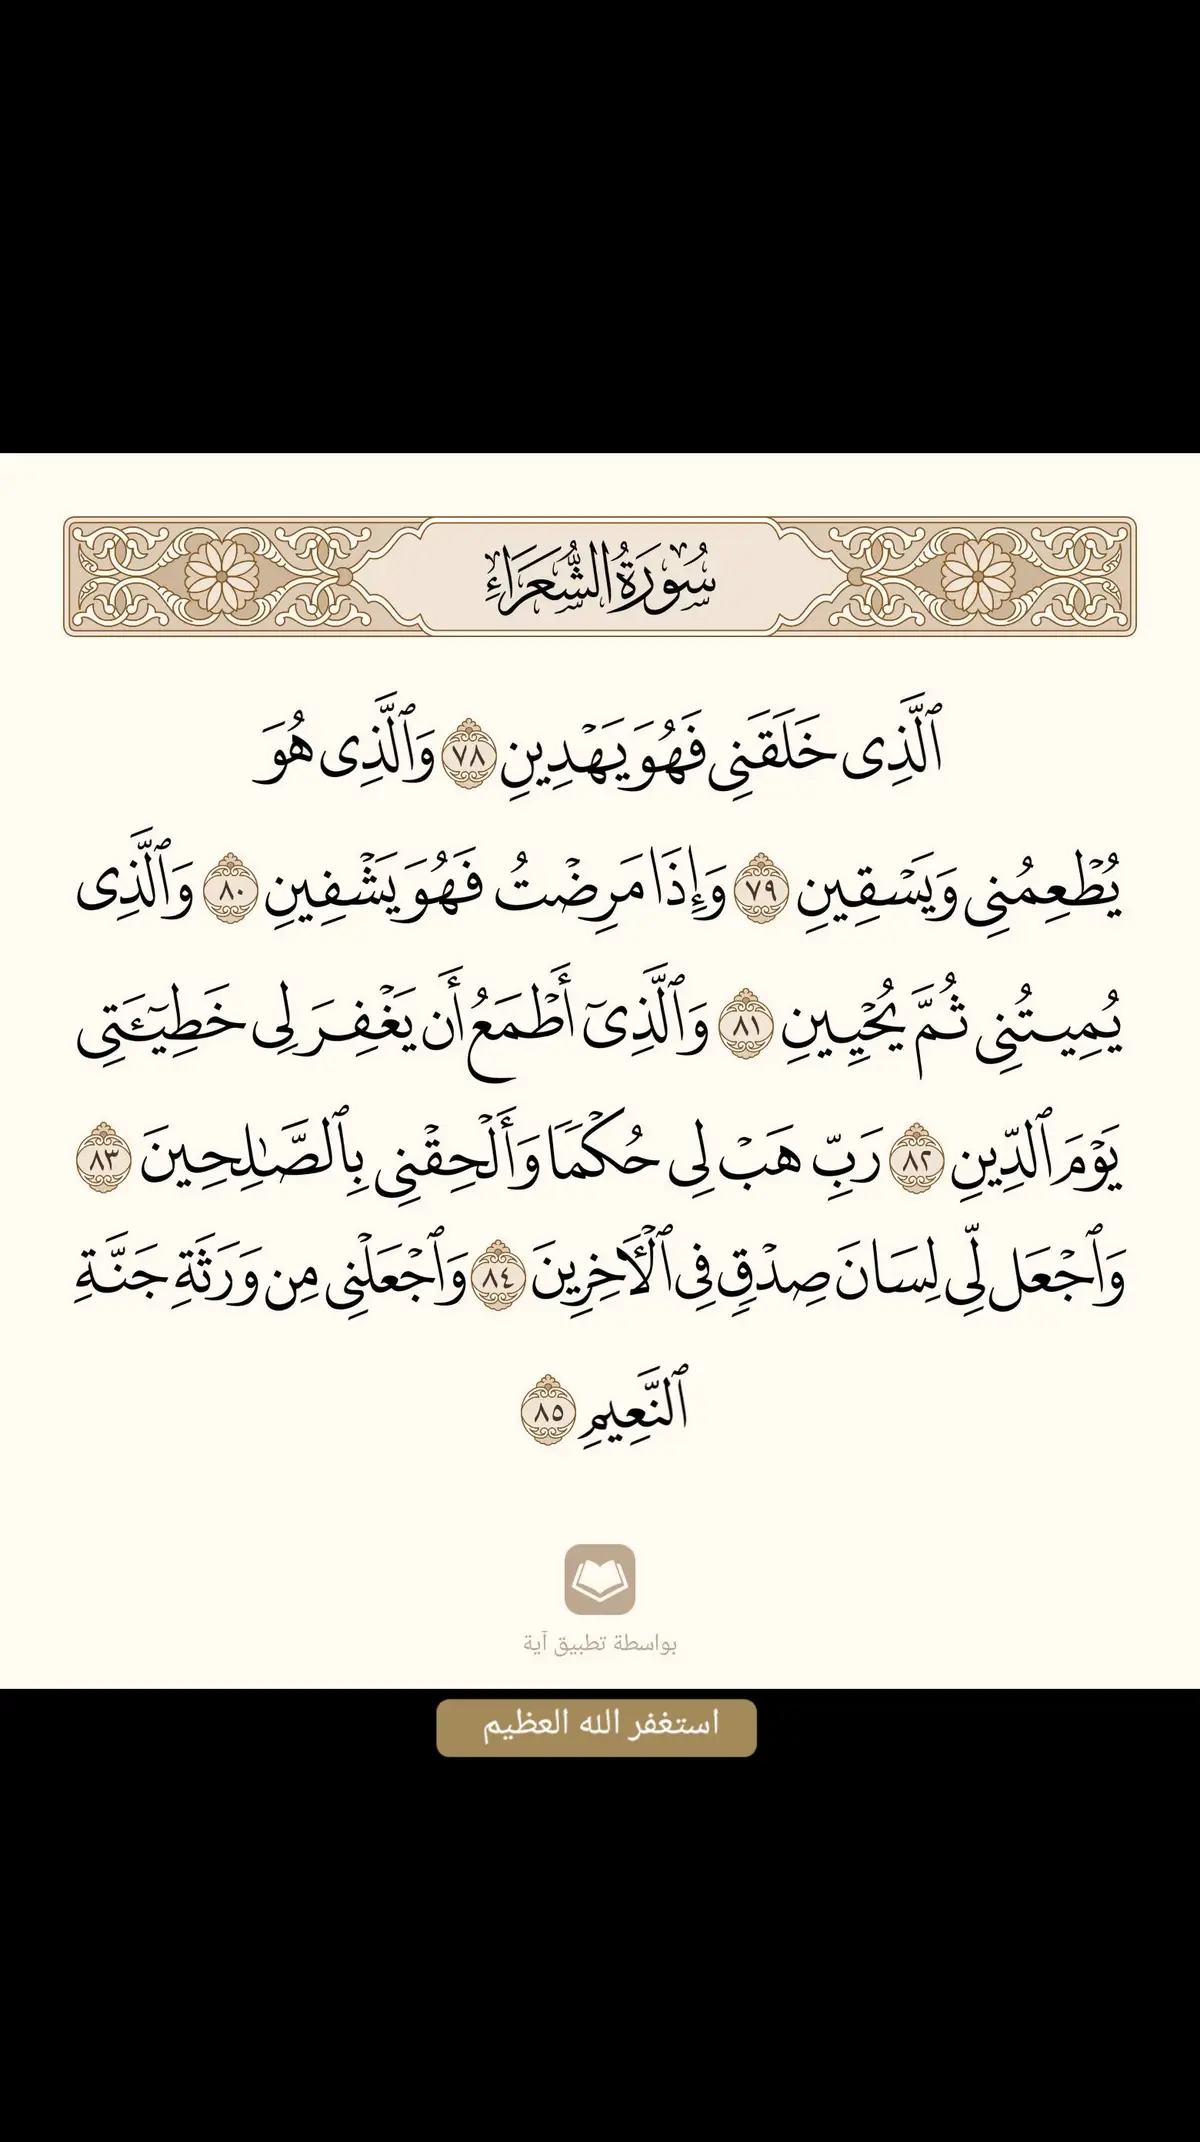 سُورَةُ الشُّعَرَاءِ
ٱلَّذِى خَلَقَنِى فَهُوَ يَهْدِينِ ٧٨ وَٱلَّذِى هُوَ
يُطْعِمُنِى وَيَسْقِينِ ٧٩ وَإِذَا مَرِضْتُ فَهُوَ يَشْفِينِ ٨٠ وَٱلَّذِى
يُمِيتُنِى ثُمَّ يُحْيِينِ ٨١ وَٱلَّذِىٓ أَطْمَعُ أَن يَغْفِرَ لِى خَطِيٓـَٔتِى
يَوْمَ ٱلدِّينِ ٨٢ رَبِّ هَبْ لِى حُكْمًا وَأَلْحِقْنِى بِٱلصَّـٰلِحِينَ ٨٣
وَٱجْعَل لِّى لِسَانَ صِدْقٍ فِى ٱلْـَٔاخِرِينَ ٨٤ وَٱجْعَلْنِى مِن وَرَثَةِ جَنَّةِ
ٱلنَّعِيمِ ٨٥
بواسطة تطبيق آية
استغفر الله العظيم